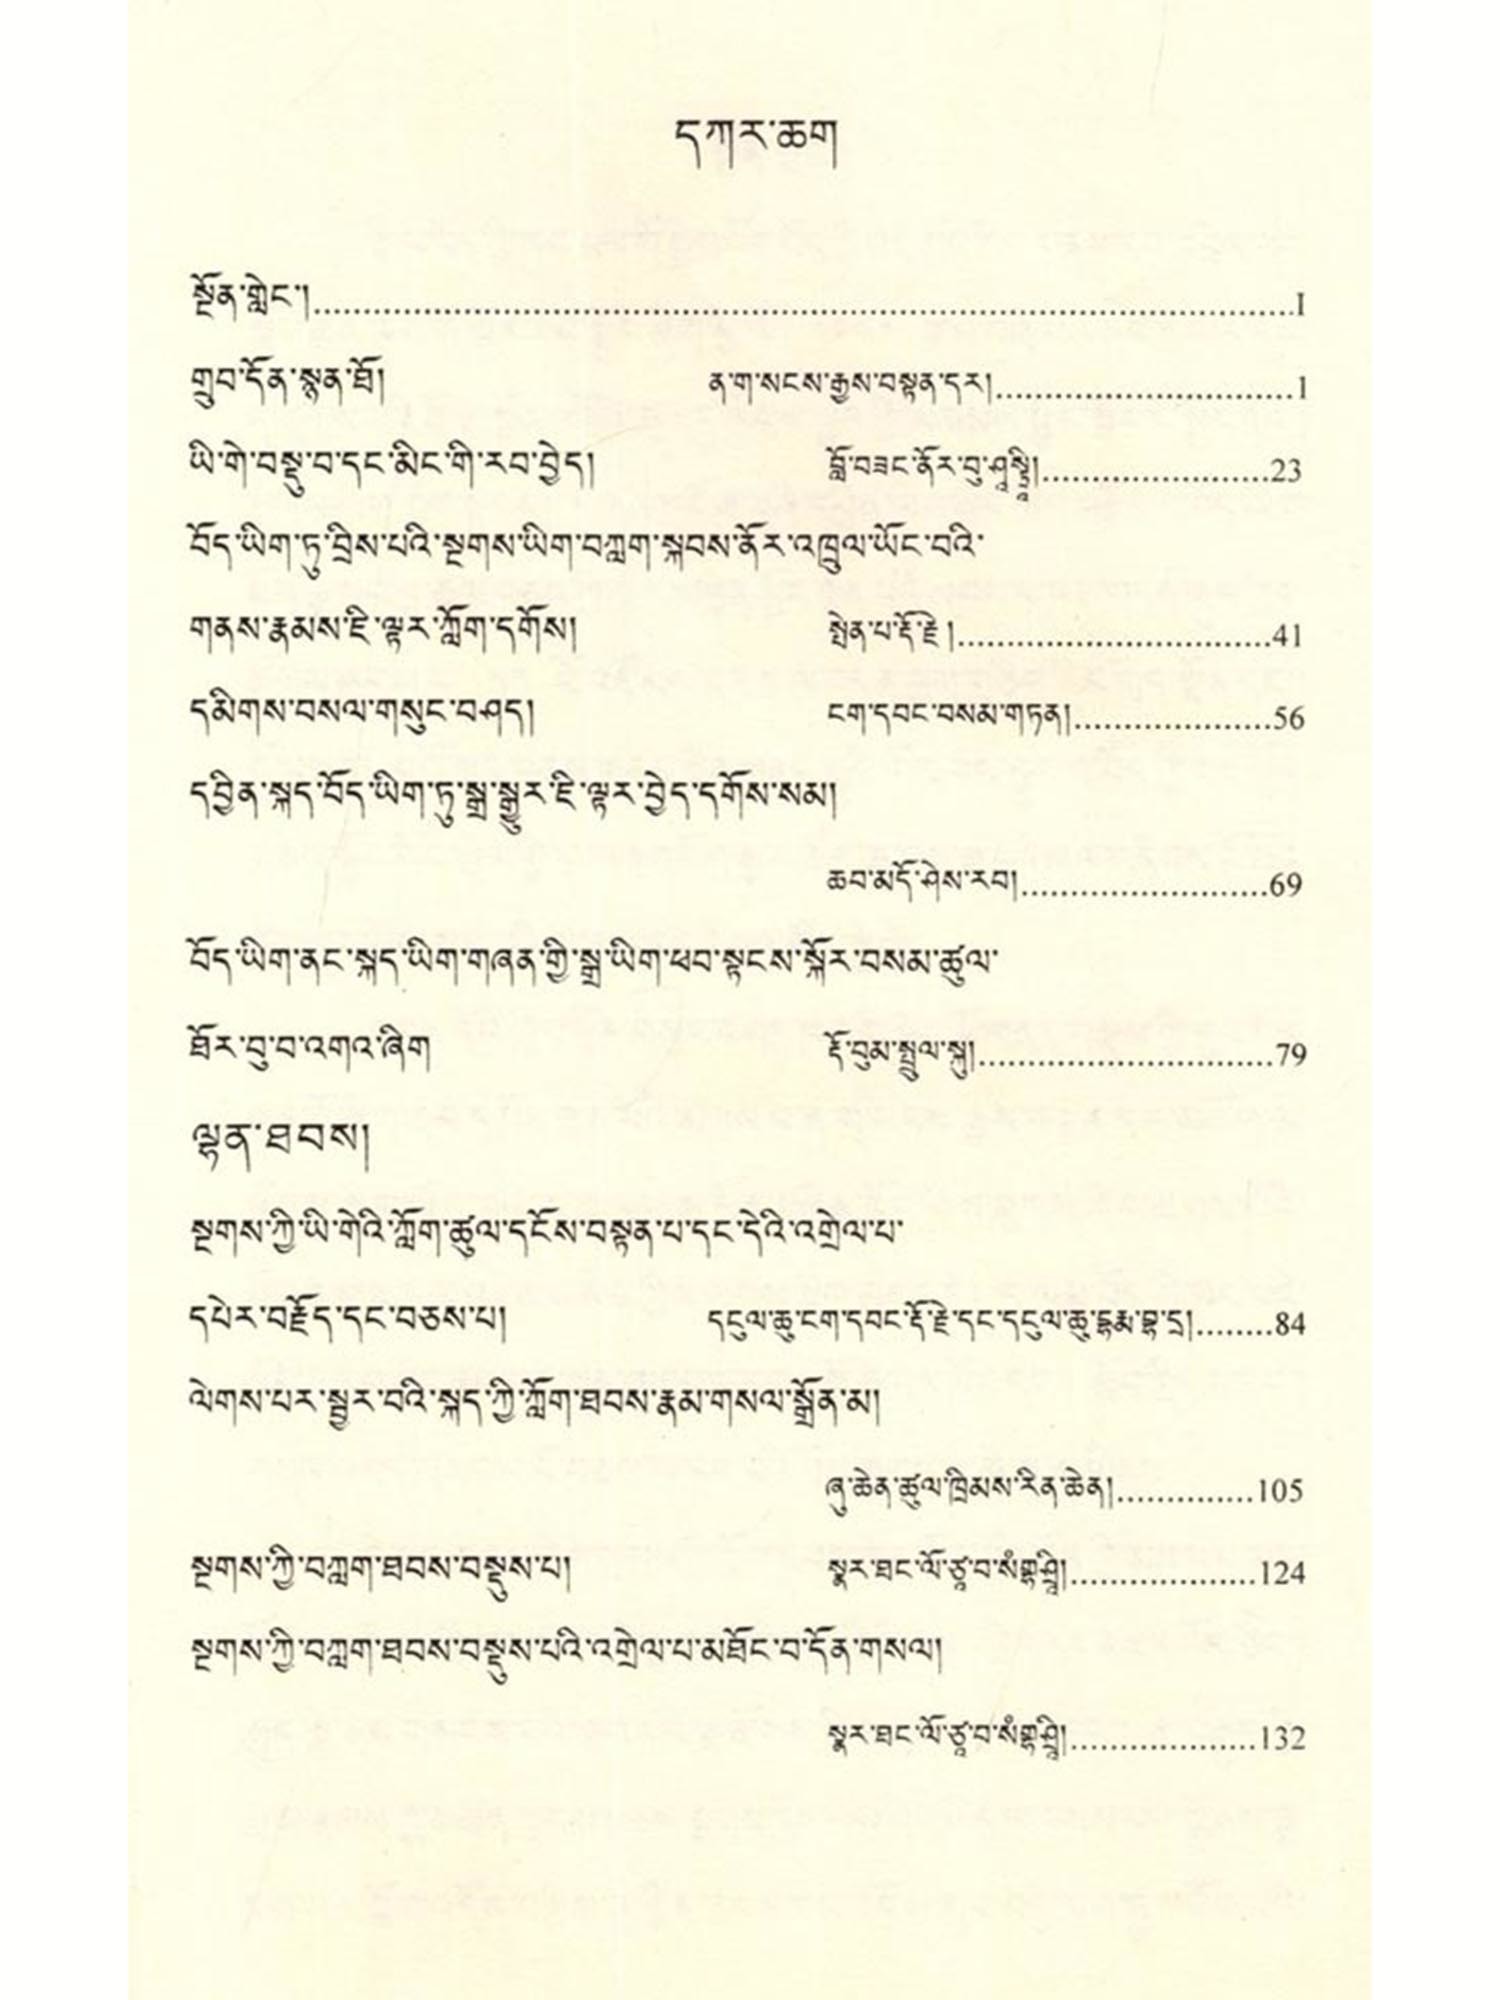 དཀར་ཆག
སྔོན་གླེང་།........................................................................................I
གྲུབ་དོན་སྙན་ཐོ། ན་ག་སངས་རྒྱས་བསྟན་དར།..............................1
ཡི་གེ་བསྡུ་བ་དང་མིང་གི་རབ་བྱེད། བློ་བཟང་ནོར་བུ་.......................23
བོད་ཡིག་ཏུ་བྲིས་པའི་སྔགས་ཡིག་བཀླག་སྐབས་ནོར་འཁྲུལ་ཡོང་བའི་
གནས་རྣམས་ཇི་ལྟར་ཀློག་དགོས། སྤེན་པ་རྡོ་རྗེ།................................41
དམིགས་བསལ་གསུང་བཤད། ངག་དབང་བསམ་གཏན།....................56
དབྱིན་སྐད་བོད་ཡིག་ཏུ་སྒྲ་སྒྱུར་ཇི་ལྟར་བྱེད་དགོས་སམ།
ཆབ་མདོ་ཤེས་རབ།.........................69
བོད་ཡིག་ནང་སྐད་ཡིག་གཞན་གྱི་སྒྲ་ཡིག་ཕབ་སྟངས་སྐོར་བསམ་ཚུལ་
ཐོར་བུ་བ་འགའ་ཞིག རྡོ་བུམ་སྤྲུལ་སྐུ།..............................79
ལྷན་ཐབས།
སྔགས་ཀྱི་ཡི་གེའི་ཀློག་ཚུལ་དངོས་བསྟན་པ་དང་དེའི་འགྲེལ་པ་
དཔེར་བརྗོད་དང་བཅས་པ། དངུལ་ཆུ་ངག་དབང་རྡོ་རྗེ་དང་དངུལ་ཆུ་དྷརྨ་བྷ་དྲ།........84
ལེགས་པར་སྦྱར་བའི་སྐད་ཀྱི་ཀློག་ཐབས་རྣམ་གསལ་སྒྲོན་མ།
ཞུ་ཆེན་ཚུལ་ཁྲིམས་རིན་ཆེན།..............105
སྔགས་ཀྱི་བཀླག་ཐབས་བསྡུས་པ། སྣར་ཐང་ལོ་ཙཱ་བ་སཾགྷ་ཤྲཱི།...................124
སྔགས་ཀྱི་བཀླག་ཐབས་བསྡུས་པའི་འགྲེལ་པ་མཐོང་བ་དོན་གསལ།
སྣར་ཐང་ལོ་ཙཱ་བ་སཾགྷ་ཤྲཱི།...................132